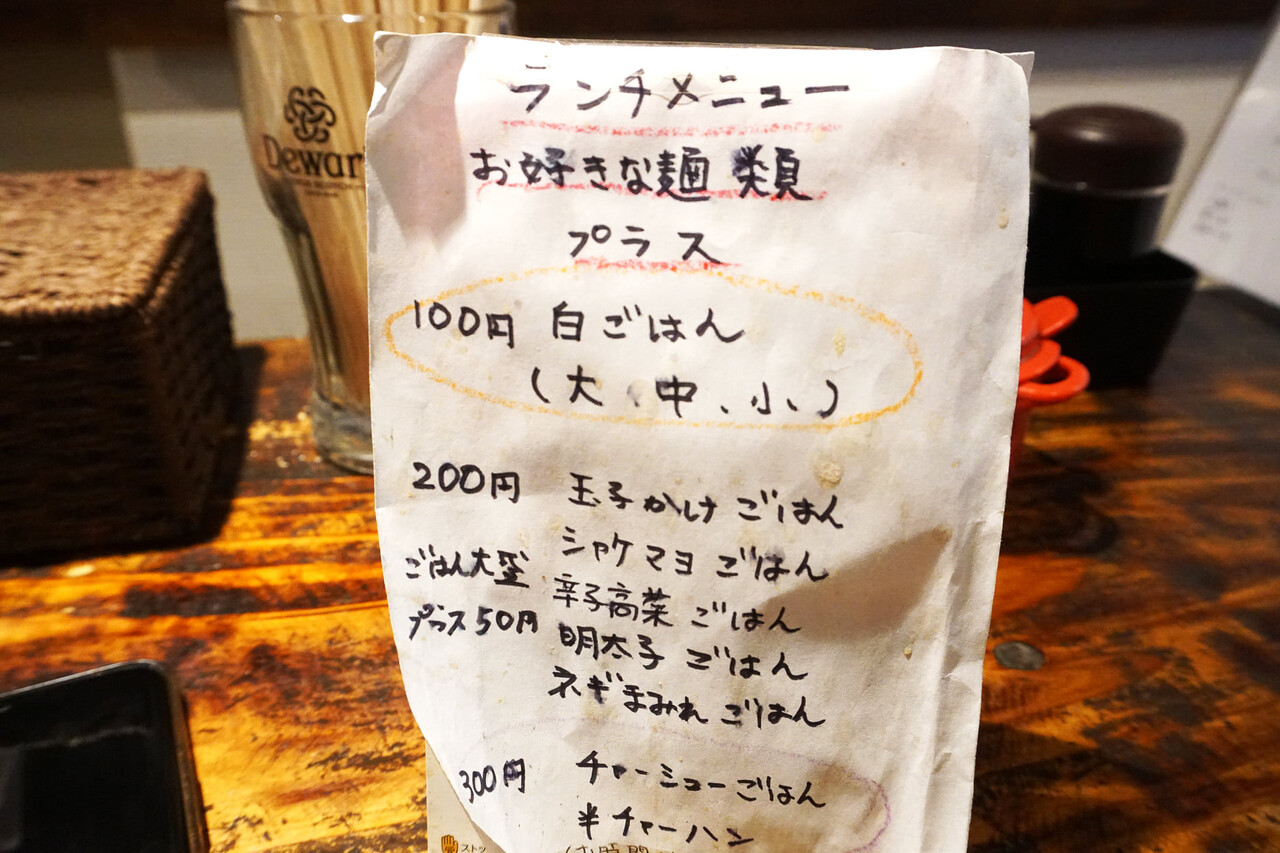 ランチメニュー
お好きな麺類
プラス
100円 白ごはん
(大、中、小、)
200円 玉子かけごはん
シャケマヨごはん
ごはん大盛
プラス50円
辛子高菜ごはん
明太子ごはん
ネギまみれごはん
300円 チャーシューごはん
半チャーハン
Dewar
ストッ